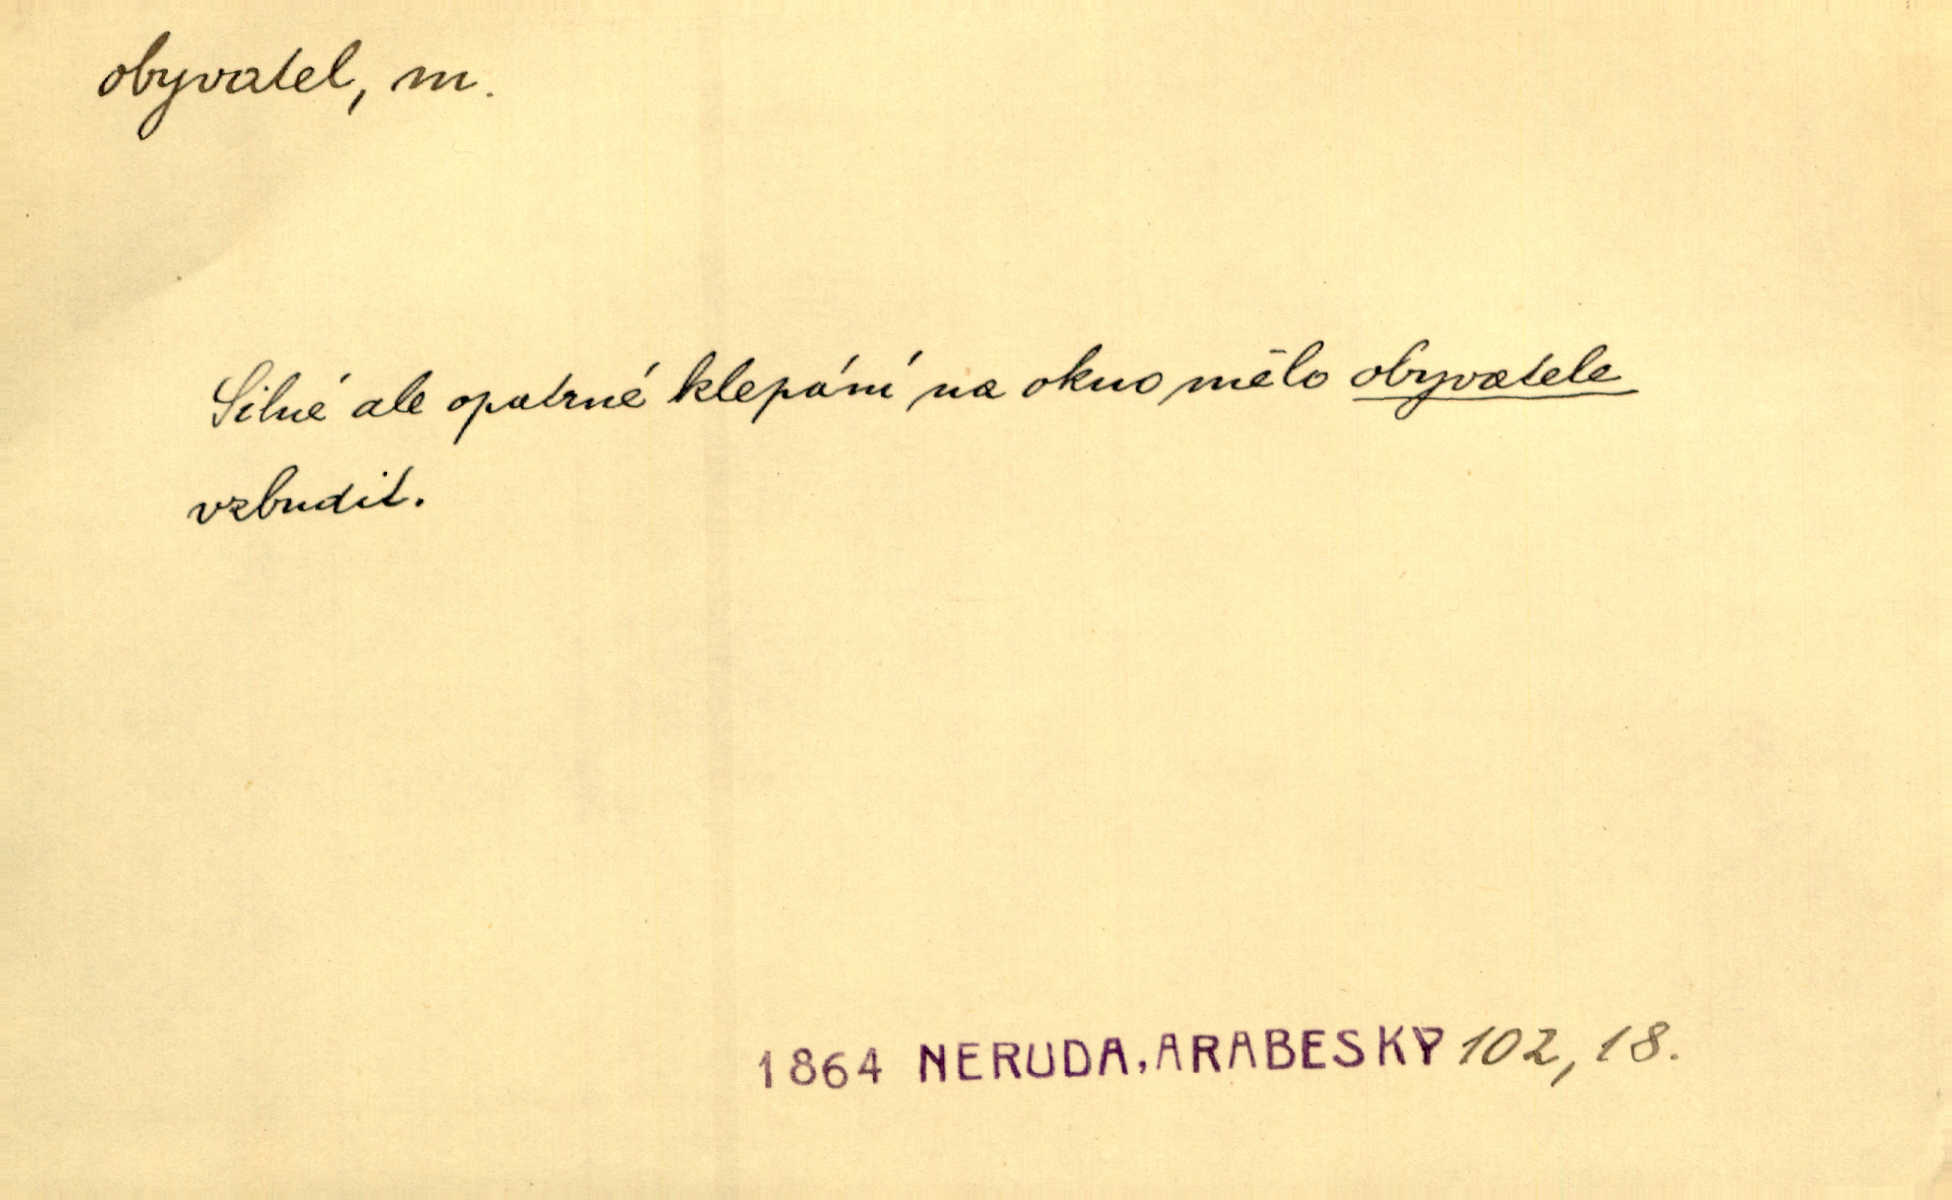 obyvatel, m.
Silné ale opatrné klepání na okno mělo obyvatele
vzbudit.
1864 NERUDA, ARABESKY 102, 18.